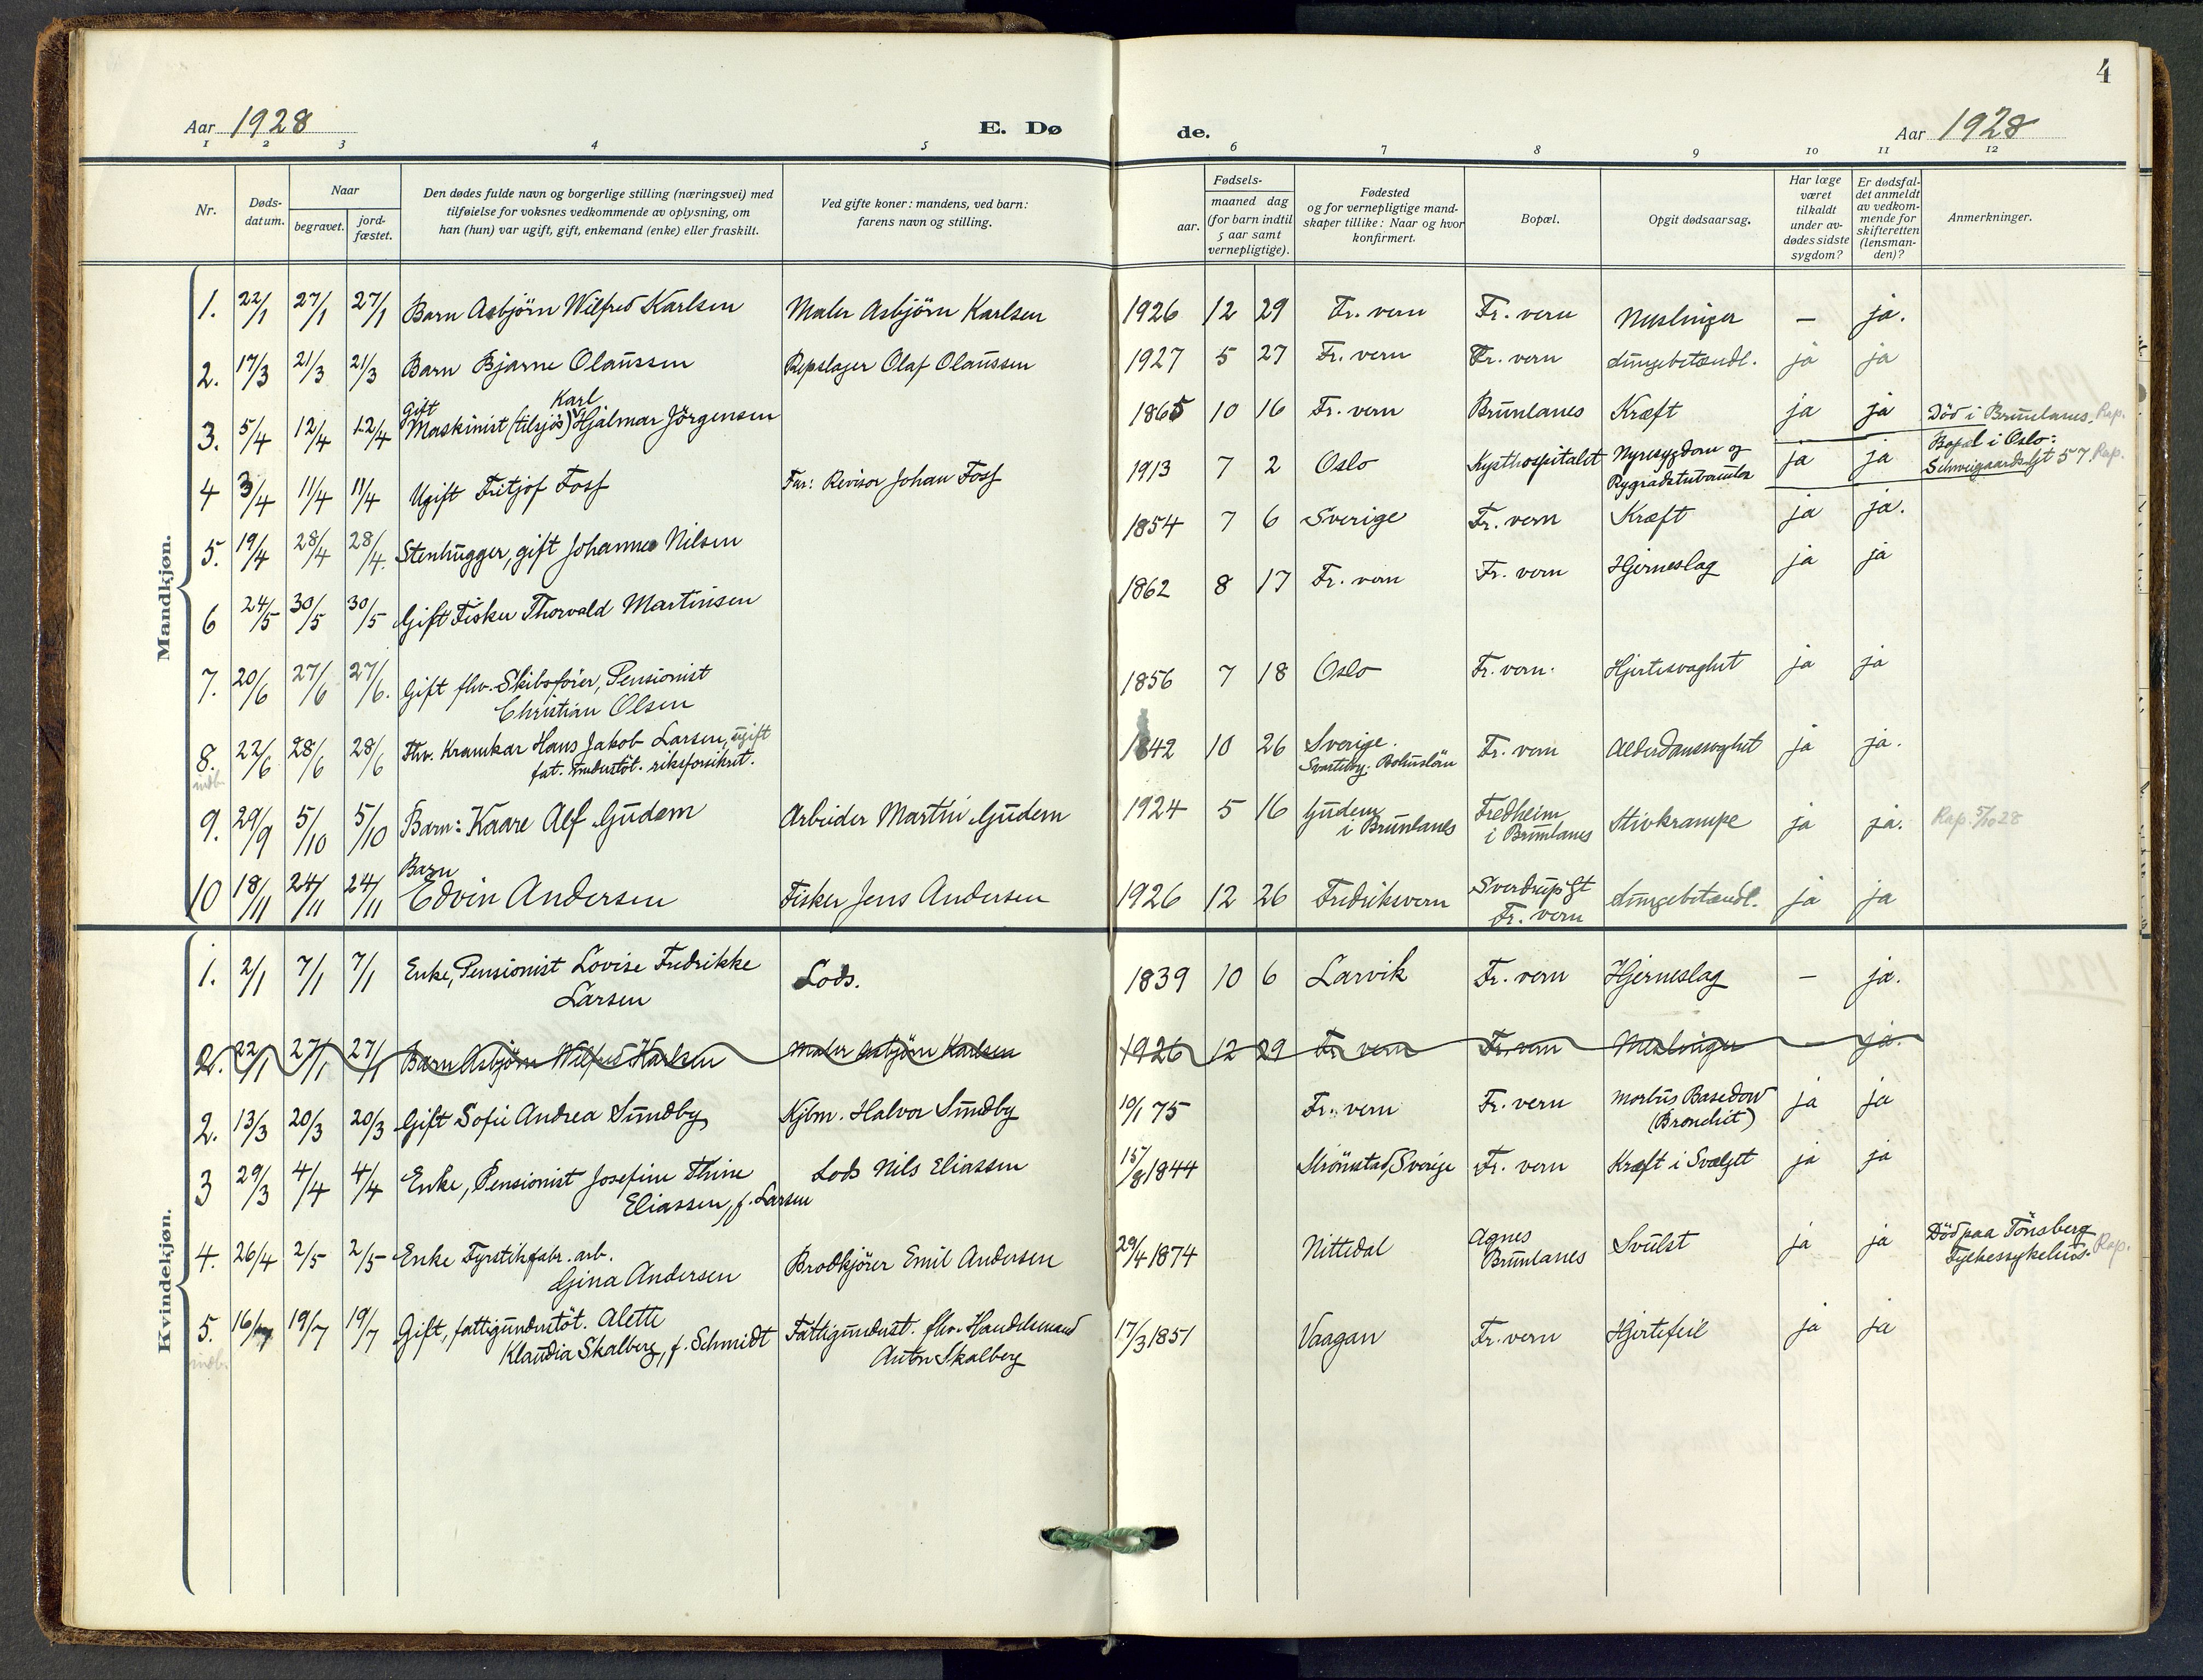 4
Aar 1928 E. Dø de. Aar 1928
1 2 3 4 5 6 7 8 9 10 11 12
Nr.
Døds-
datum.
Naar
begravet.
jord-
fæstet.
Den dødes fulde navn og borgerlige stilling (næringsvei) med
tilføielse for voksnes vedkommende av oplysning, om
han (hun) var ugift, gift, enkemand (enke) eller fraskilt.
Ved gifte koner: mandens, ved barn:
farens navn og stilling.
Fødsels-
aar. maaned dag
(for barn indtil
5 aar samt
vernepligtige).
Fødested
og for vernepligtige mand-
skaper tillike: Naar og hvor
konfirmert.
Bopæl.
Opgit dødsaarsag.
Har læge
været
tilkaldt
under av-
dødes sidste
sygdom?
Er dødsfal-
det anmeldt
av vedkom-
mende for
skifteretten
(lensman-
den)?
Anmerkninger.
Mandkjøn.
1. 22/1 27/1 27/1 Barn Asbjörn Wilfred Karlsen Maler Asbjörn Karlsen 1926 12 29 Fr. vern Fr. vern Meslinger — ja.
2. 17/3 21/3 21/3 Barn Bjarne Olaussen Repslager Olaf Olaussen 1927 5 27 Fr. vern Fr. vern Lungebetændl. ja ja
Gift Karl
3. 5/4 12/4 12/4 Maskinist (tilsjös) Hjalmar Jörgensen 1865 10 16 Fr. vern Brunlanes Kræft ja ja Död i Brunlanes. Rap.
4 3/4 11/4 11/4 Ugift Fritjof Foss Far: Revisor Johan Foss 1913 7 2 Oslo Kysthospitalet Nyresygdom og
Rygradstuberculos ja ja Bopæl i Oslo:
Schweigaardsgt 57 Rap.
5. 19/4 28/4 28/4. Stenhugger, gift Johannes Nilsen 1854 7 6 Sverige Fr. vern Kræft ja ja.
6 24/5 30/5 30/5 Gift Fisker Thorvald Martinsen 1862 8 17 Fr. vern Fr. vern Hjerneslag ja ja
7. 20/6 27/6 27/6. Gift fhv. Skibsfører, Pensionist
Christian Olsen 1856 7 18 Oslo Fr. vern. Hjertesvaghet ja ja
8. 22/6 28/6 28/6 Fhv. Kramkar Hans Jakob Larsen, ugift
fat. understöt. riksforsikret. 1842 10 26 Sverige.
Bohuslän Fr. vern Alderdomssvaghet ja ja.
indb.
9. 29/9 5/10 5/10 Barn: Kaare Alf Gudem Arbeider Martin Gudem 1924 5 16 Gudem
i Brunlanes Fredheim
i Brunlanes Stivkrampe ja ja. Rap. 5/10 28
Barn
10 18/11 24/11 24/11 Edvin Andersen Fisker Jens Andersen 1926 12 26 Fredriksvern Sverdrups gt
Fr. vern Lungebetændl. ja ja
Kvindekjøn.
1. 2/1 7/1 7/1 Enke, Pensionist Lovise Fredrikke
Larsen Lods. 1839 10 6 Larvik Fr. vern Hjerneslag — ja.
2. 22/1 27/1 27/1 Barn Asbjörn Wilfred Karlsen Maler Asbjörn Karlsen 1926 12 29 Fr. vern Fr. vern Meslinger — ja.
2. 13/3 20/3 20/3 Gift Sofie Andrea Sundby Kjbm. Halvor Sundby 10/1 75 Fr. vern Fr. vern Morbus Basedow
(Bronchit) ja ja
3 29/3 4/4 4/4 Enke, Pensionist Josefine Thine
Eliassen, f. Larsen Lods Nils Eliassen 15/8 1844 Strömstad, Sverige Fr. vern Kræft i Svælget ja ja
4. 26/4 2/5 2/5 Enke Fyrstikfabr. arb.
Gina Andersen Brödkjörer Emil Andersen 29/4 1874 Nittedal Agnes
Brunlanes Svulst ja ja Död paa Tönsberg
Fylkessykehus. Rap.
5. 16/7 19/7 19/7 Gift, fattigunderstöt. Alette
Klaudia Skalberg, f. Schmidt Fattigunderst. fhv. Handelsmand
Anton Skalberg 17/3 1851 Vaagan Fr. vern Hjertefeil ja ja
indb.